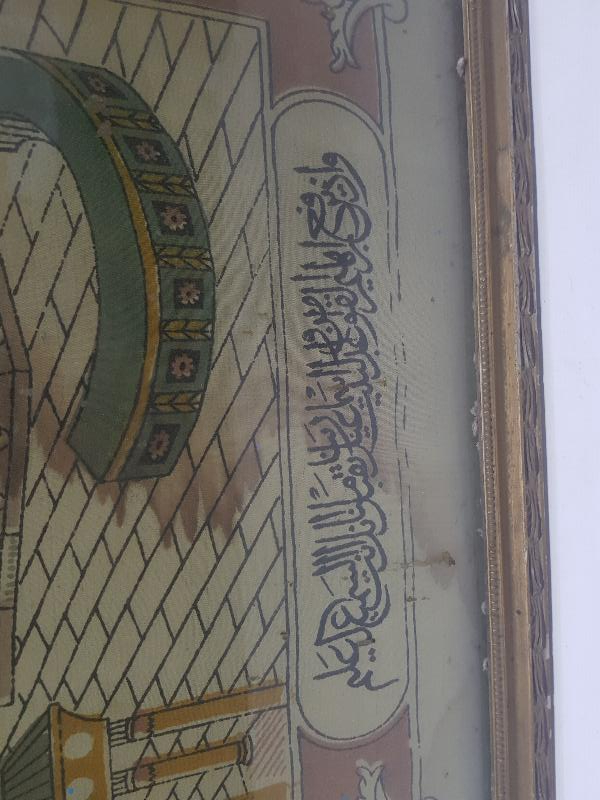 واذ يرفع ابراهيم القواعد من البيت واسماعيل ربنا تقبل منا انك انت السميع العليم